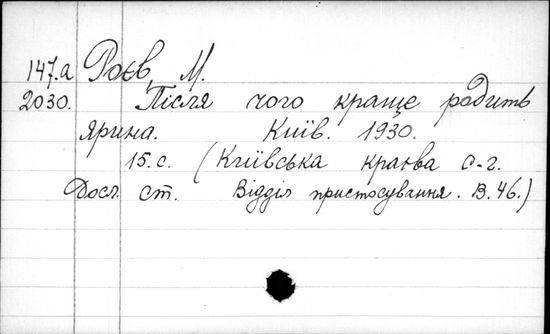 147.а Роєв, М.
2030. Після чого краще родить
ярина. Київ. 1930.
15.с. (Київська краєва с.-г.
Досл. ст. Відділ пристосування. В.46.)